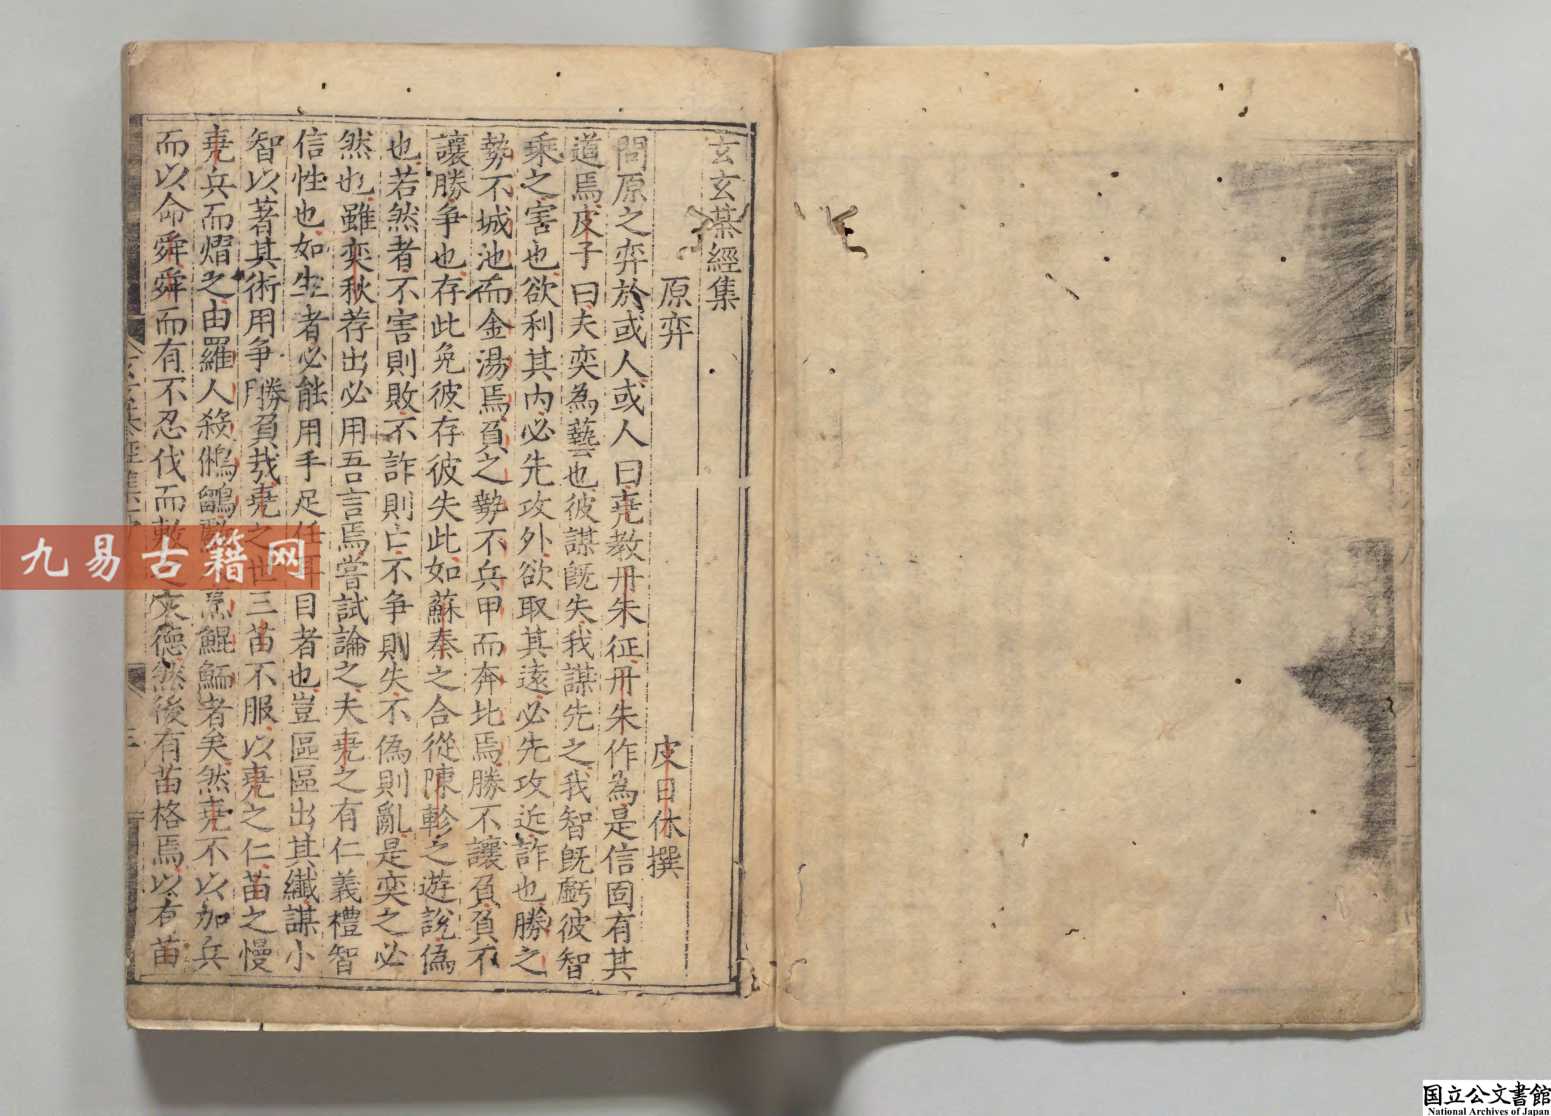 玄玄棊經集
原弈
皮日休撰
問原之弈於或人或人曰堯教丹朱征丹朱作為是信固有其
道焉皮子曰夫奕為藝也彼謀旣失我謀先之我智旣虧彼智
乘之害也欲利其內必先攻外欲取其遠必先攻近詐也勝之
勢不城池而金湯焉負之勢不兵甲而奔北焉勝不讓負負不
讓勝爭也存此免彼存彼失此如蘇秦之合從陳軫之遊說偽
也若然者不害則敗不詐則亡不爭則失不偽則亂是奕之必
然也雖奕秋荐出必用吾言焉嘗試論之夫堯之有仁義禮智
信性也如生者必能用手足任耳目者也豈區區出其纖謀小
智以著其術用爭勝負哉堯之世三苗不服以堯之仁苗之慢
堯兵而熠之由羅人殺鵂鶹烹鯤鮞者矣然堯不以加兵
而以命舜舜而有不忍伐而敷之文德然後有苗格焉以有苗
九易古籍网
国立公文書館
National Archives of Japan